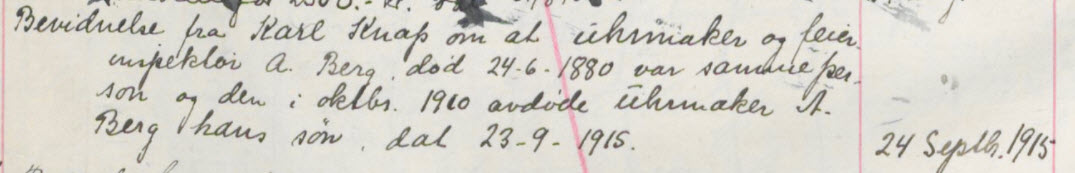 Bevidnelse fra Karl Knap om at ührmaker og feier-
inspektör A. Berg, död 24-6-1880 var samme per-
son og den i oktbr. 1910 avdöde ührmaker A.
Berg hans sön, dat 23-9-1915.
24 Septb. 1915